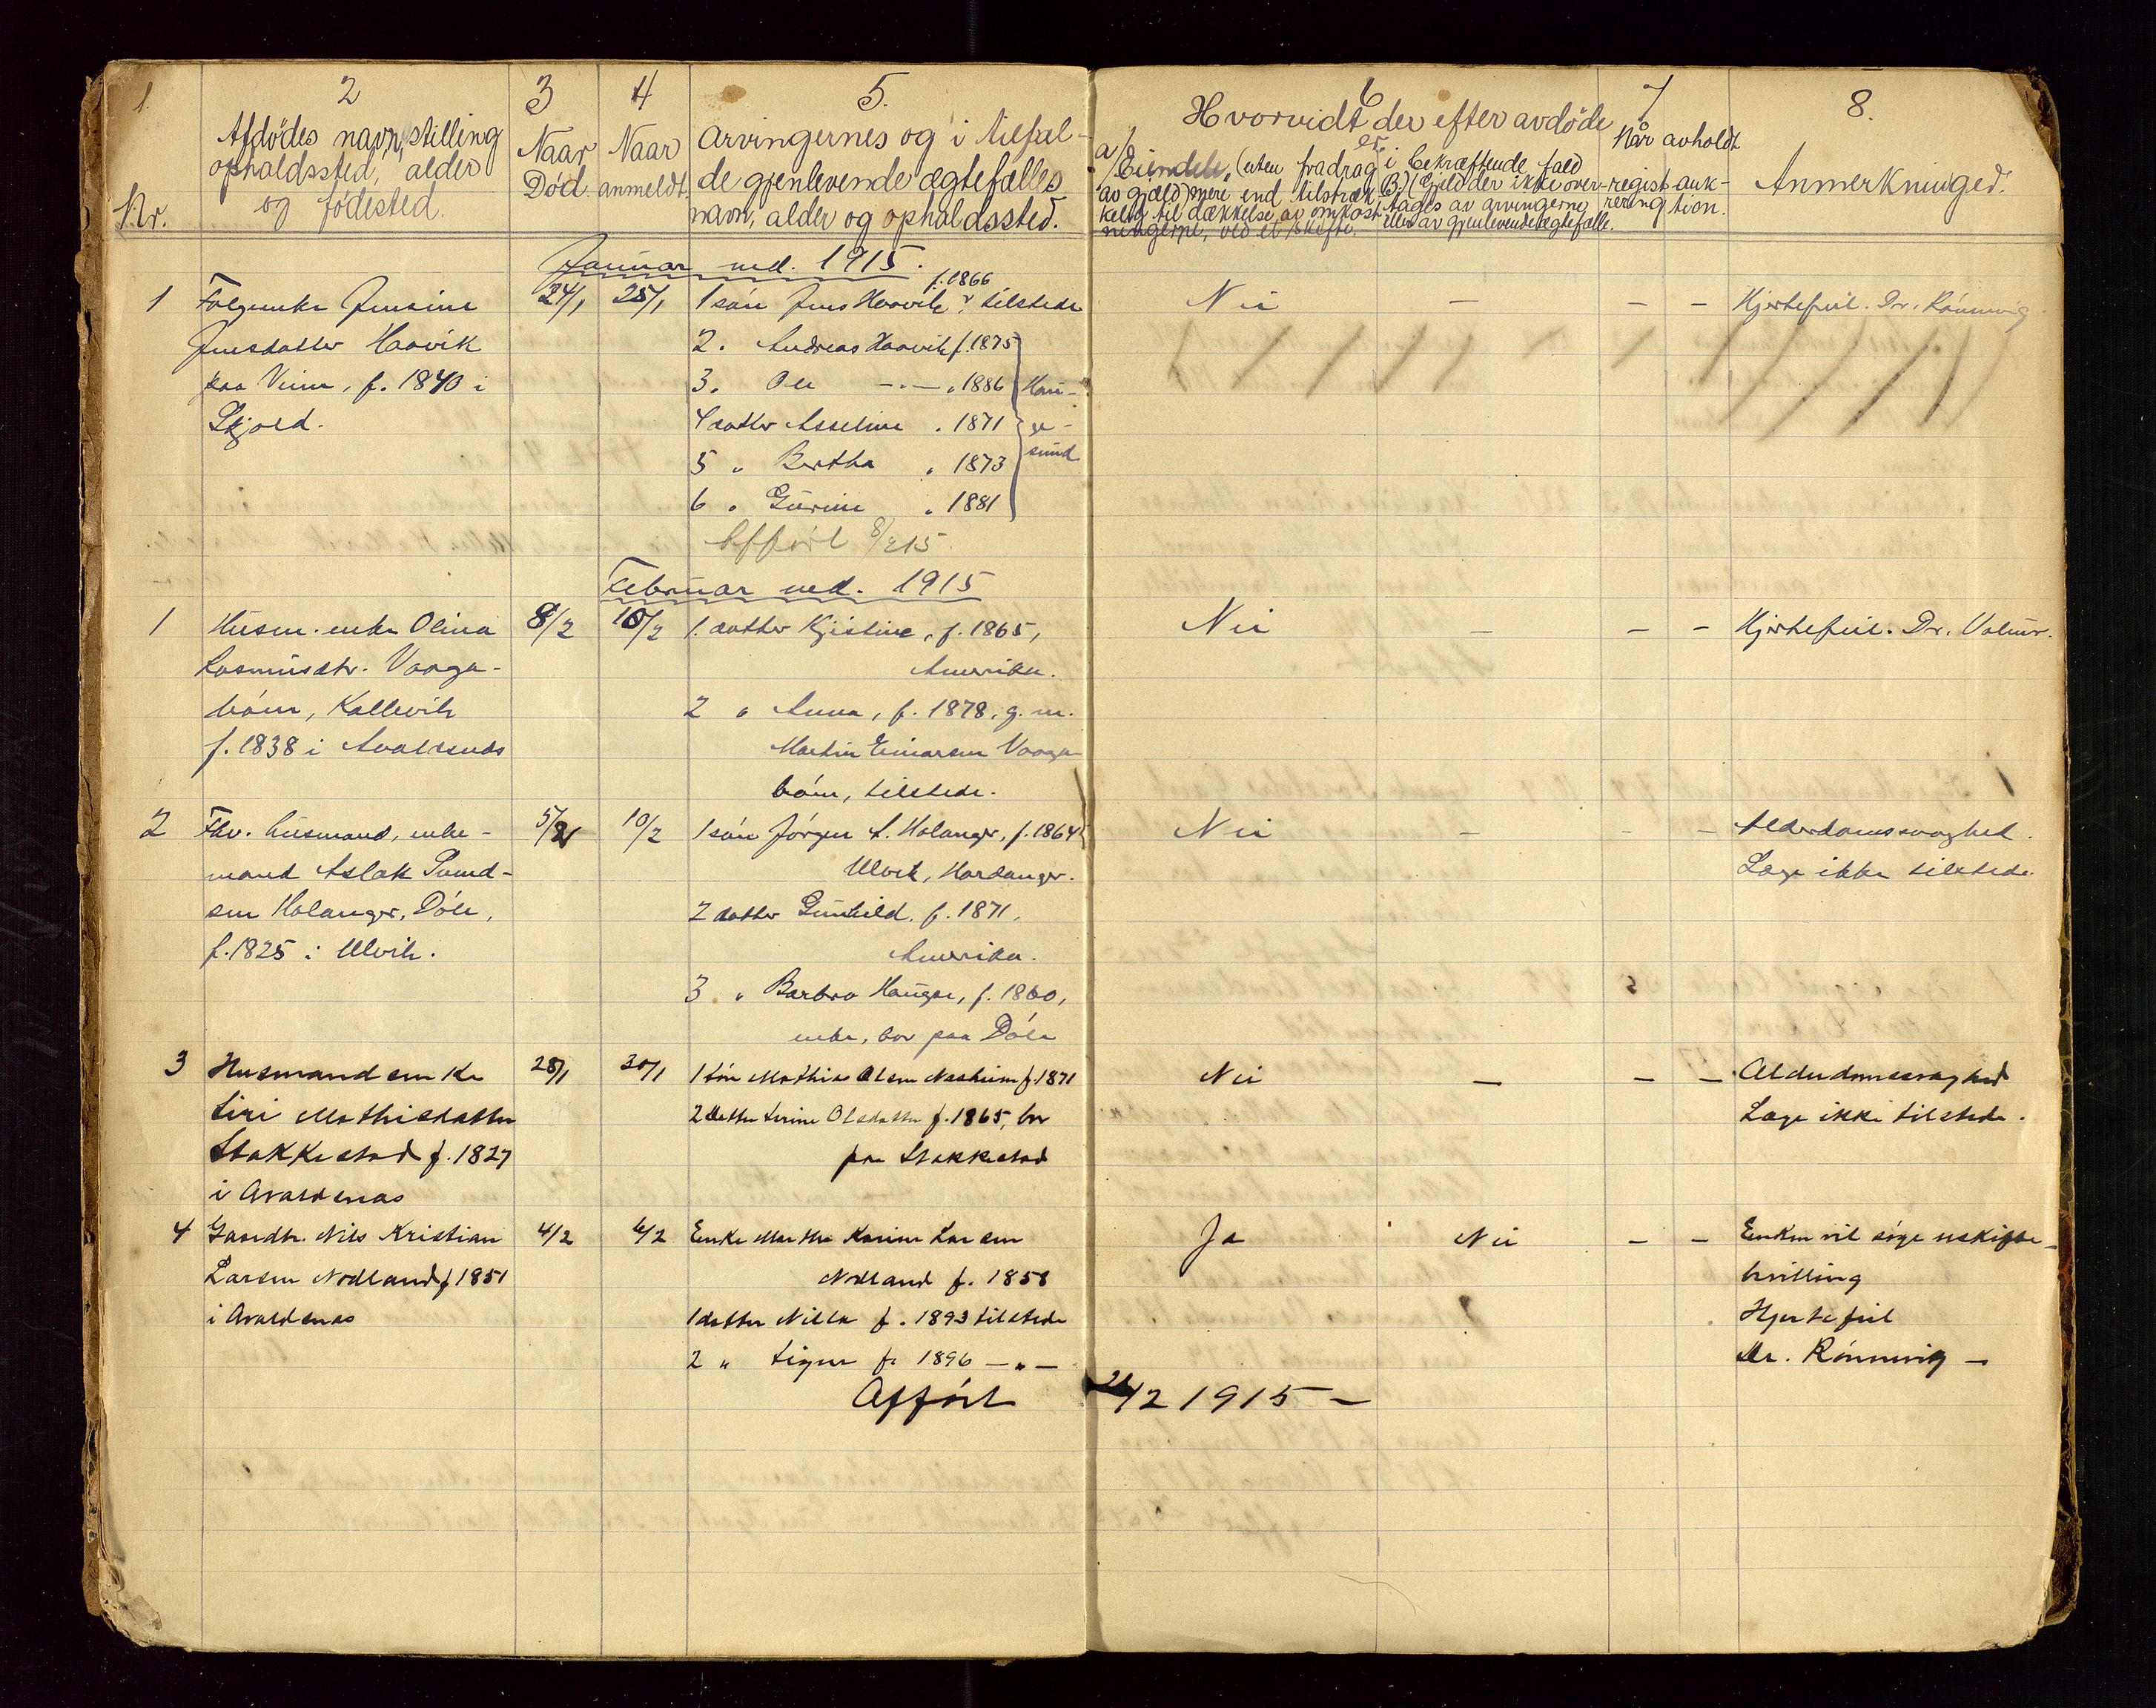 1. 2 3 4 5. 6 7 8.
Nr.
Afdødes navn, stilling
opholdssted, alder
og fødested.
Naar
Død.
Naar
anmeldt.
Arvingernes og i tilfæl-
de gjenlevende ægtefælles
navn, alder og opholdssted.
Hvorvidt der efter avdøde
er
a/ Eiendele, (uten fradrag
av gjæld) mere end tilstræk
kelig til dækkelse av omkost-
ningerne, ved et skifte.
i bekræftende fald
B.) Gjæld der ikke over-
tages av arvingerne
eller av gjenlevende ægtefælle.
Når avholdt
regist-
rering
auk-
tion.
Anmerkninger.
Januar md. 1915.
1 Folgeenke Jensine 24/1 25/1 1 søn Jens Haavik f. 1866 tilstede Nei – – – Hjertefeil. Dr. Rønnevig.
Jensdatter Haavik 2. Andreas Haavik f. 1875
paa Vinn, f. 1840 i 3. Ole –„– „ 1886 Hau-
Skjold. 4 datter Asseline „ 1871 ge-
5 „ Bertha „ 1873 sund
6 „ Gurine „ 1881
Afført 8/2 15.
Februar md. 1915
1 Husm. enke Olina 8/2 10/2 1. datter Kjistine, f. 1865, Nei – – – Hjertefeil. Dr. Volmer.
Rasmusdtr. Vaaga- Amerika.
bøen, Kallevik 2 „ Anna, f. 1878, g. m.
f. 1838 i Avaldsnes Martin Einarsen Vaaga
bøen, tilstede.
2 Fhv. husmand, enke- 5/2 10/2 1 søn Jørgen A. Holanger, f. 1864 Nei – – – Alderdomssvaghed.
mand Aslak Sand- Ulvik, Hardanger. Læge ikke tilstede.
sen Holanger, Døle, 2 datter Gunhild. f. 1871,
f. 1825 i Ulvik. Amerika.
3 „ Barbra Hauge, f. 1860,
enke, bor paa Døle
3 Husmandsenke 28/1 30/1 1 søn Mathias Olsen Nesheim f. 1871 Nei – – – Alderdomssvaghed
Siri Mathisdatter 2 datter Serine Olsdatter f. 1865, bor Læge ikke tilstede.
Stakkestad f. 1827 paa Stakkestad
i Avaldsnes
4 Gaardbr. Nils Kristian 4/2 6/2 Enke Martha Karine Larsen Ja Nei – – Enken vil søge uskifte-
Larsen Nodland f 1851 Nodland f. 1858 bevilling
i Avaldsnes 1 datter Nilla f. 1893 tilstede Hjertefeil
2 „ Signe f. 1896 –„– Dr. Rønnevig –
Afført 26/2 1915 –